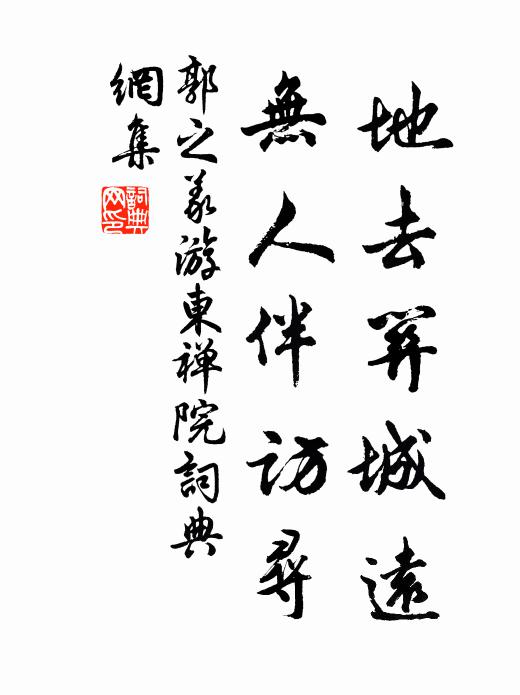 地去城遠
無人伴訪尋
郭之義游東禅院詞典
網集
詞典
网印